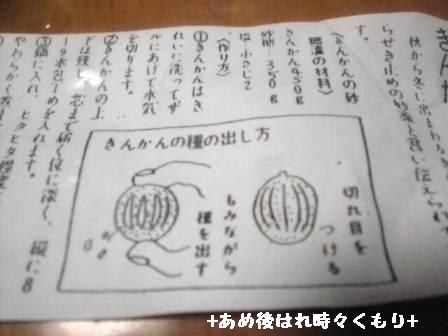 きんか
秋から冬に出まわるき
らせき止めの妙薬と言い伝えられ
す。
〈きんかんの砂
糖漬の材料〉
きんかん450g
砂糖…350g
塩…小さじ2
〈作り方〉
①きんかんはき
れいに洗ってザ
ルにあけて水気
を切ります。
②きんかんの上
下は残し、芯まで届く位に深く、縦に8
〜9本包丁めを入れます。
③鍋に入れ、ヒタヒタ程度
やわらかく煮
きんかんの種の出し方
切れ目を
つける
もみながら
種を出す
+あめ後はれ時々くもり+